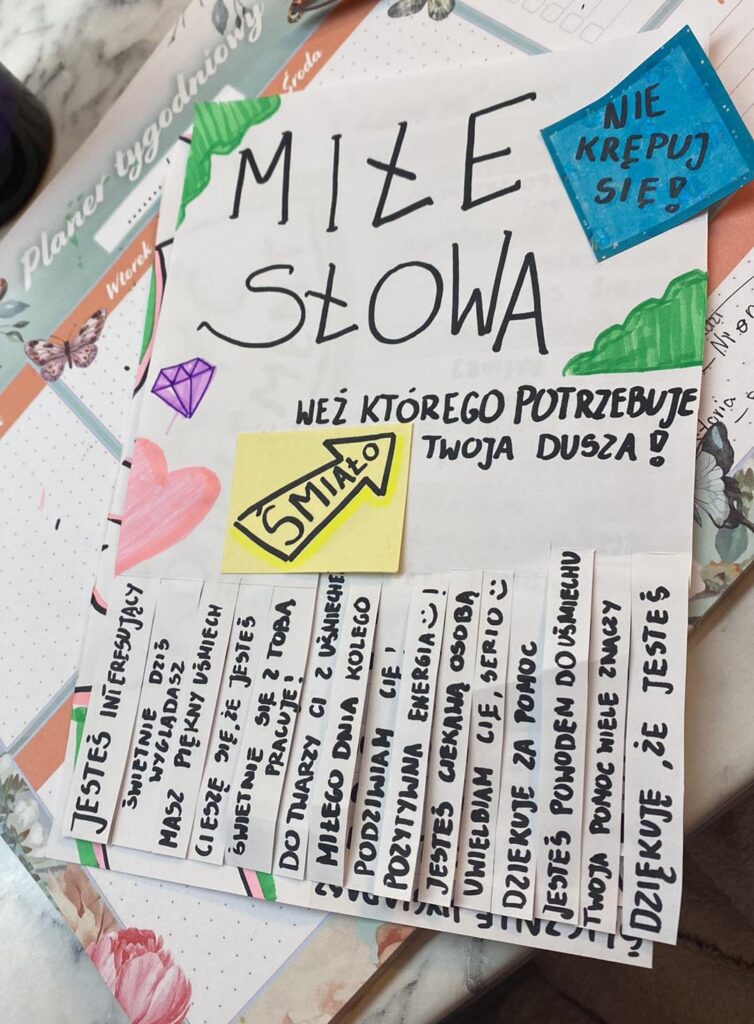 Planer tygodniowy
Wtorek
Środa
MIŁE
SŁOWA
NIE
KRĘPUJ
SIĘ!
WEŹ KTÓREGO POTRZEBUJE
TWOJA DUSZA!
ŚMIAŁO
JESTEŚ INTERESUJĄCY
ŚWIETNIE DZIŚ
WYGLĄDASZ
MASZ PIĘKNY UŚMIECH
CIESZĘ SIĘ ŻE JESTEŚ
ŚWIETNIE SIĘ Z TOBĄ
PRACUJE!
DO TWARZY CI Z UŚMIECHEM
MIŁEGO DNIA KOLEGO
PODZIWIAM CIĘ!
POZYTYWNA ENERGIA☺!
JESTEŚ CIEKAWĄ OSOBĄ
UWIELBIAM CIĘ, SERIO☺
DZIĘKUJĘ ZA POMOC
JESTEŚ POWODEM DO UŚMIECHU
TWOJA POMOC WIELE ZNACZY
DZIĘKUJĘ, ŻE JESTEŚ